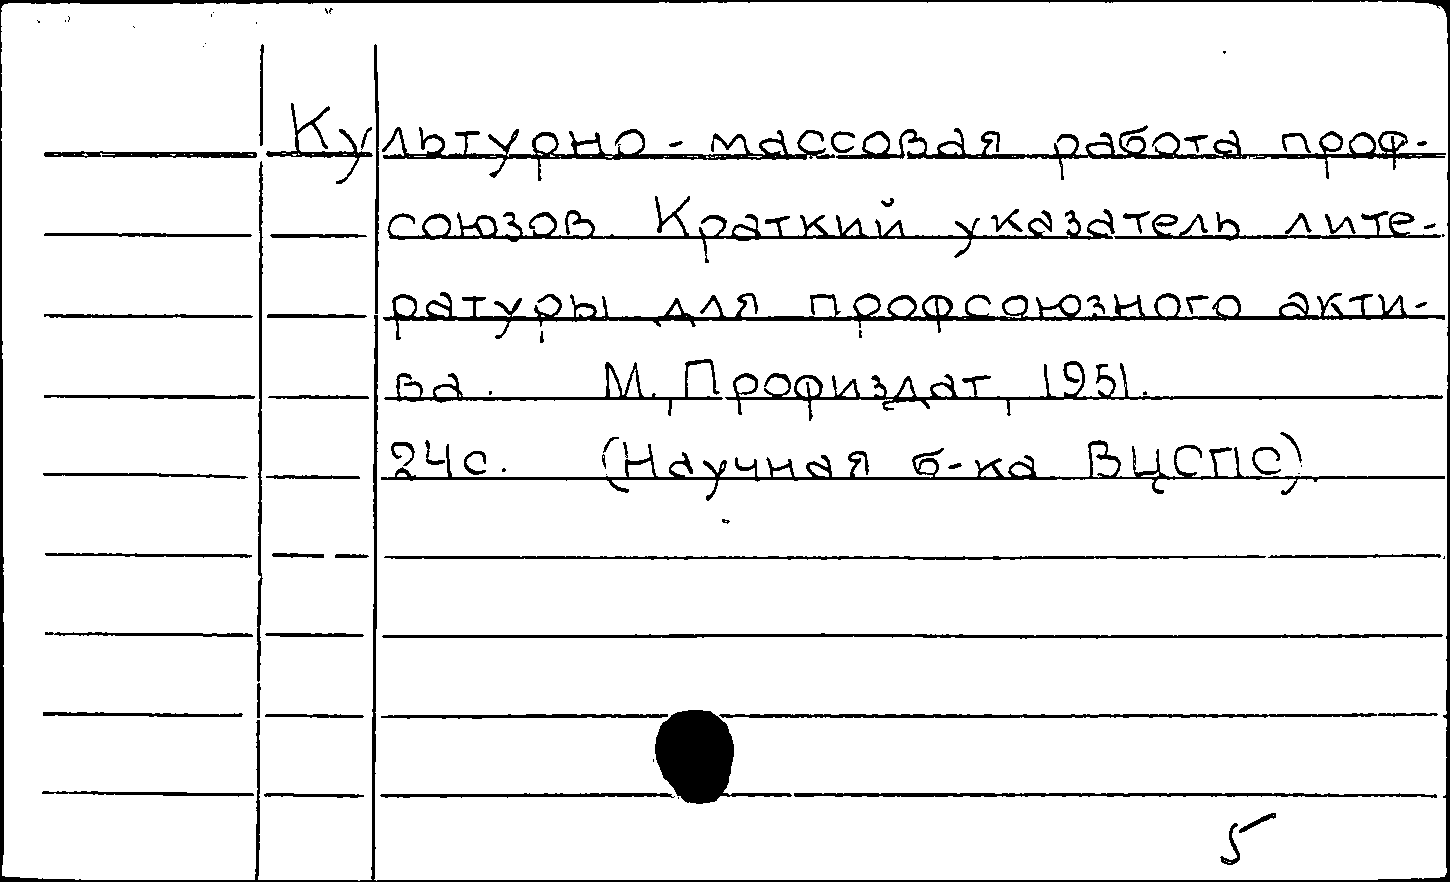 Культурно-массовая работа проф-
союзов. Краткий указатель лите-
ратуры для профсоюзного акти-
ва. М., Профиздат, 1951.
24с. (Научная б-ка ВЦСПС).
5